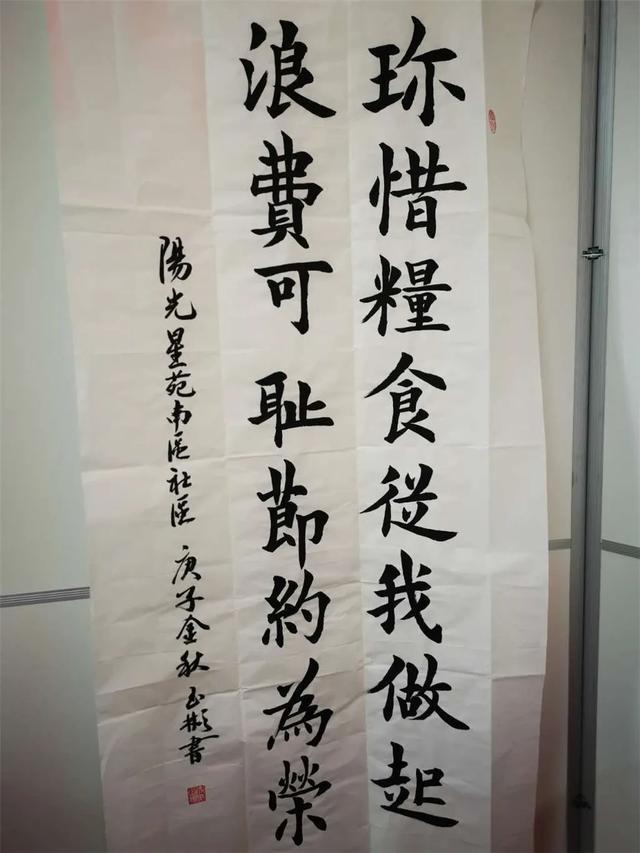 珎惜糧食從我做起
浪費可耻節約為榮
陽光星苑南區社區 庚子金秋 玉彬書